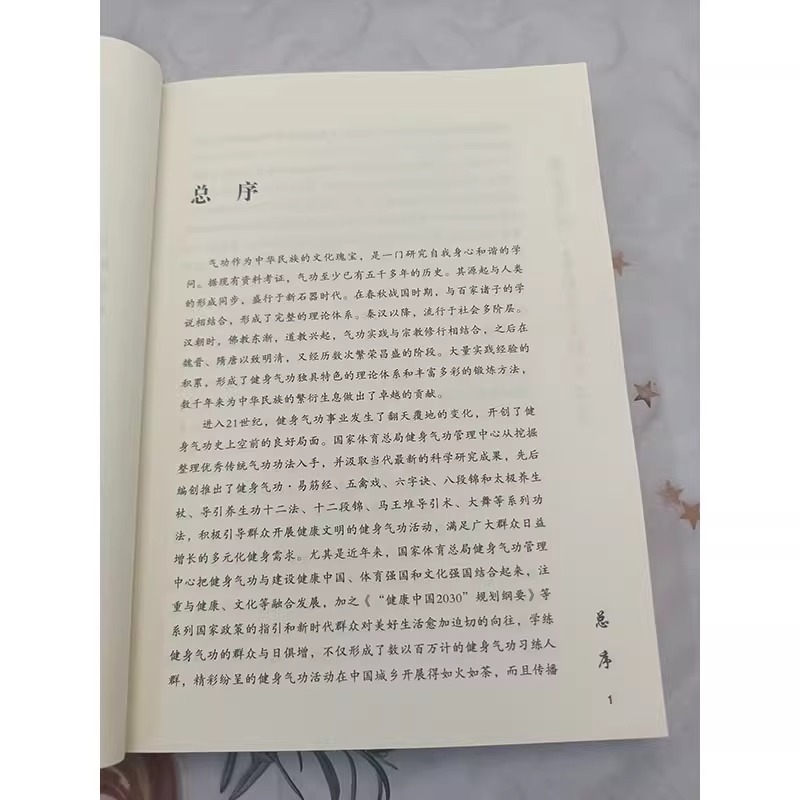 总 序
气功作为中华民族的文化瑰宝，是一门研究自我身心和谐的学
问。据现有资料考证，气功至少已有五千多年的历史。其源起与人类
的形成同步，盛行于新石器时代。在春秋战国时期，与百家诸子的学
说相结合，形成了完整的理论体系。秦汉以降，流行于社会多阶层。
汉朝时，佛教东渐，道教兴起，气功实践与宗教修行相结合，之后在
魏晋、隋唐以致明清，又经历数次繁荣昌盛的阶段。大量实践经验的
积累，形成了健身气功独具特色的理论体系和丰富多彩的锻炼方法，
数千年来为中华民族的繁衍生息做出了卓越的贡献。
进入21世纪，健身气功事业发生了翻天覆地的变化，开创了健
身气功史上空前的良好局面。国家体育总局健身气功管理中心从挖掘
整理优秀传统气功功法入手，并汲取当代最新的科学研究成果，先后
编创推出了健身气功·易筋经、五禽戏、六字诀、八段锦和太极养生
杖、导引养生功十二法、十二段锦、马王堆导引术、大舞等系列功
法，积极引导群众开展健康文明的健身气功活动，满足广大群众日益
增长的多元化健身需求。尤其是近年来，国家体育总局健身气功管理
中心把健身气功与建设健康中国、体育强国和文化强国结合起来，注
重与健康、文化等融合发展，加之《“健康中国2030”规划纲要》等
系列国家政策的指引和新时代群众对美好生活愈加迫切的向往，学练
健身气功的群众与日俱增，不仅形成了数以百万计的健身气功习练人
群，精彩纷呈的健身气功活动在中国城乡开展得如火如荼，而且传播
总序
1